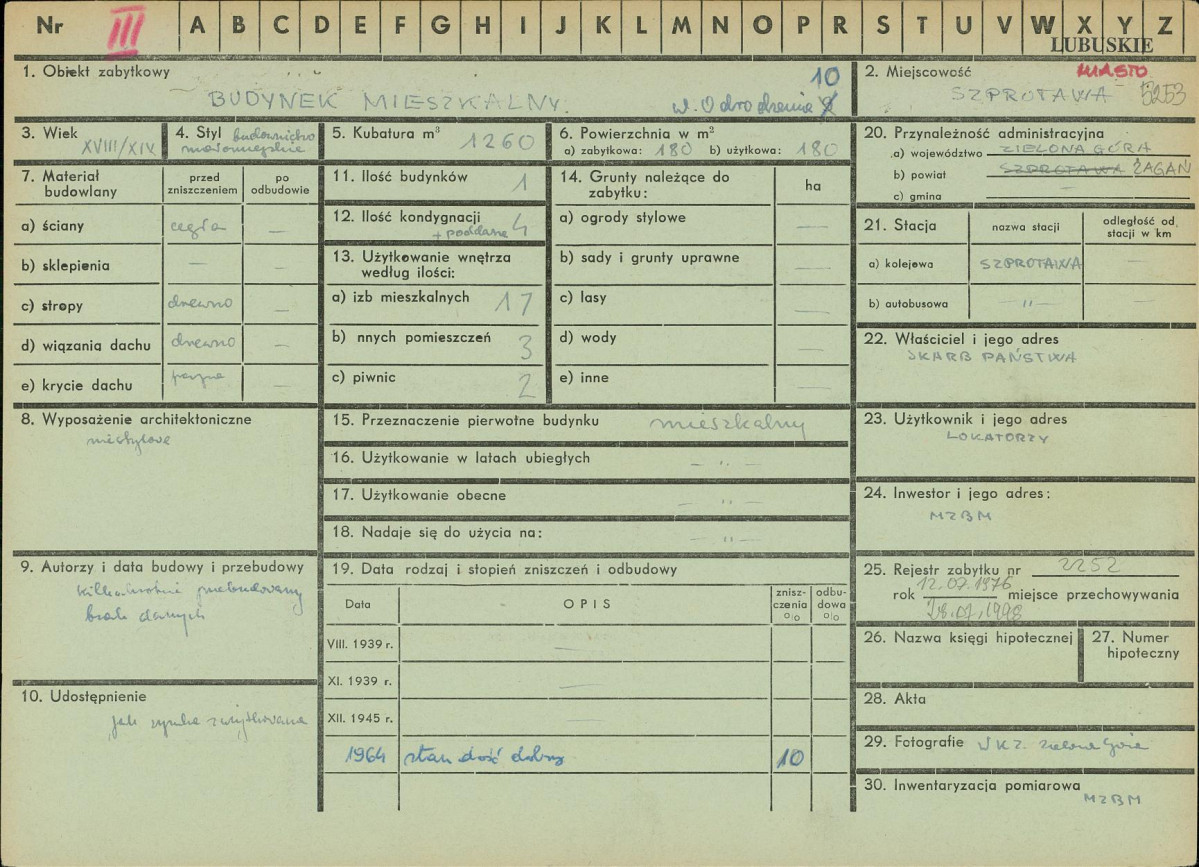 Nr III A B C D E F G H I J K L M N O P R S T U V W X Y Z
LUBUSKIE
1. Obiekt zabytkowy
BUDYNEK MIESZKALNY. 10
2. Miejscowość MIASTO
SZPROTAWA 5253
3. Wiek
XVIII/XIX
4. Styl budownictwo
małomiejskie
5. Kubatura m³
1260
6. Powierzchnia w m²
a) zabytkowa: 180 b) użytkowa: 180
7. Materiał budowlany
przed zniszczeniem
po odbudowie
a) ściany cegła —
b) sklepienia — —
c) stropy drewno —
d) wiązania dachu drewno —
e) krycie dachu —
8. Wyposażenie architektoniczne
9. Autorzy i data budowy i przebudowy
kilkakrotnie przebudowany
brak danych
10. Udostępnienie
11. Ilość budynków 1
12. Ilość kondygnacji
+ poddasze 4
13. Użytkowanie wnętrza
według ilości:
a) izb mieszkalnych 17
b) nnych pomieszczeń 3
c) piwnic 2
14. Grunty należące do
zabytku: ha
a) ogrody stylowe —
b) sady i grunty uprawne —
c) lasy —
d) wody —
e) inne —
15. Przeznaczenie pierwotne budynku mieszkalny
16. Użytkowanie w latach ubiegłych — " —
17. Użytkowanie obecne — " —
18. Nadaje się do użycia na: — " —
19. Data rodzaj i stopień zniszczeń i odbudowy
Data OPIS znisz-czenia % odbu-dowa %
VIII. 1939 r. —
XI. 1939 r. —
XII. 1945 r.
1964 stan dość dobry 10
20. Przynależność administracyjna
a) województwo ZIELONA GÓRA
b) powiat SZPROTAWA ŻAGAŃ
c) gmina —
21. Stacja nazwa stacji odległość od stacji w km
a) kolejowa SZPROTAWA —
b) autobusowa — " — —
22. Właściciel i jego adres
SKARB PAŃSTWA
23. Użytkownik i jego adres
LOKATORZY
24. Inwestor i jego adres:
MZBM
25. Rejestr zabytku nr 2252
rok 12.07.1976 miejsce przechowywania
28.07.1998
26. Nazwa księgi hipotecznej
27. Numer hipoteczny
28. Akta
29. Fotografie WKZ. Zielona Góra
30. Inwentaryzacja pomiarowa
MZBM